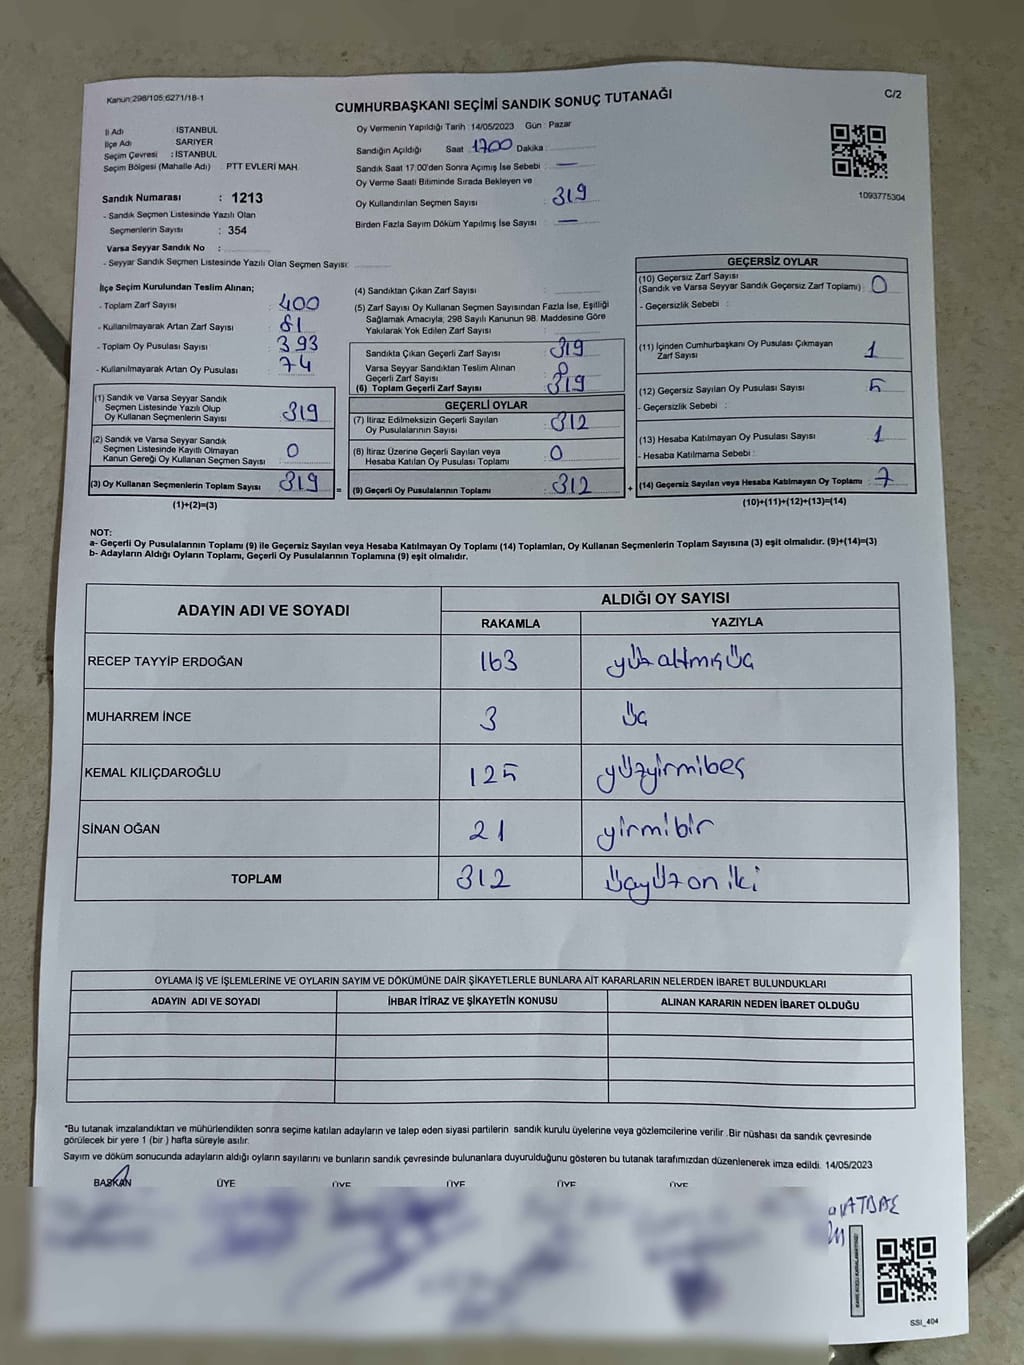 Kanun:298/105;6271/18-1
CUMHURBAŞKANI SEÇİMİ SANDIK SONUÇ TUTANAĞI
C/2
İl Adı : İSTANBUL
İlçe Adı : SARIYER
Seçim Çevresi : İSTANBUL
Seçim Bölgesi (Mahalle Adı) : PTT EVLERİ MAH.
Sandık Numarası : 1213
- Sandık Seçmen Listesinde Yazılı Olan
Seçmenlerin Sayısı : 354
Varsa Seyyar Sandık No :
- Seyyar Sandık Seçmen Listesinde Yazılı Olan Seçmen Sayısı:
Oy Vermenin Yapıldığı Tarih : 14/05/2023 Gün : Pazar
Sandığın Açıldığı Saat 1700 Dakika :
Sandık Saat 17:00'den Sonra Açılmış İse Sebebi : —
Oy Verme Saati Bitiminde Sırada Bekleyen ve
Oy Kullandırılan Seçmen Sayısı : 319
Birden Fazla Sayım Döküm Yapılmış İse Sayısı : —
1093775304
İlçe Seçim Kurulundan Teslim Alınan;
- Toplam Zarf Sayısı : 400
- Kullanılmayarak Artan Zarf Sayısı : 81
- Toplam Oy Pusulası Sayısı : 393
- Kullanılmayarak Artan Oy Pusulası : 74
(1) Sandık ve Varsa Seyyar Sandık
Seçmen Listesinde Yazılı Olup
Oy Kullanan Seçmenlerin Sayısı : 319
(2) Sandık ve Varsa Seyyar Sandık
Seçmen Listesinde Kayıtlı Olmayan
Kanun Gereği Oy Kullanan Seçmen Sayısı : 0
(3) Oy Kullanan Seçmenlerin Toplam Sayısı : 319
(1)+(2)=(3)
(4) Sandıktan Çıkan Zarf Sayısı :
(5) Zarf Sayısı Oy Kullanan Seçmen Sayısından Fazla İse, Eşitliği
Sağlamak Amacıyla, 298 Sayılı Kanunun 98. Maddesine Göre
Yakılarak Yok Edilen Zarf Sayısı :
Sandıkta Çıkan Geçerli Zarf Sayısı : 319
Varsa Seyyar Sandıktan Teslim Alınan
Geçerli Zarf Sayısı : 0
(6) Toplam Geçerli Zarf Sayısı : 319
GEÇERLİ OYLAR
(7) İtiraz Edilmeksizin Geçerli Sayılan
Oy Pusulalarının Sayısı : 312
(8) İtiraz Üzerine Geçerli Sayılan veya
Hesaba Katılan Oy Pusulası Toplamı : 0
= (9) Geçerli Oy Pusulalarının Toplamı : 312
GEÇERSİZ OYLAR
(10) Geçersiz Zarf Sayısı
(Sandık ve Varsa Seyyar Sandık Geçersiz Zarf Toplamı) : 0
- Geçersizlik Sebebi :
(11) İçinden Cumhurbaşkanı Oy Pusulası Çıkmayan
Zarf Sayısı : 1
(12) Geçersiz Sayılan Oy Pusulası Sayısı : 5
- Geçersizlik Sebebi :
(13) Hesaba Katılmayan Oy Pusulası Sayısı : 1
- Hesaba Katılmama Sebebi :
+ (14) Geçersiz Sayılan veya Hesaba Katılmayan Oy Toplamı : 7
(10)+(11)+(12)+(13)=(14)
NOT:
a- Geçerli Oy Pusulalarının Toplamı (9) ile Geçersiz Sayılan veya Hesaba Katılmayan Oy Toplamı (14) Toplamları, Oy Kullanan Seçmenlerin Toplam Sayısına (3) eşit olmalıdır. (9)+(14)=(3)
b- Adayların Aldığı Oyların Toplamı, Geçerli Oy Pusulalarının Toplamına (9) eşit olmalıdır.
ADAYIN ADI VE SOYADI
ALDIĞI OY SAYISI
RAKAMLA YAZIYLA
RECEP TAYYİP ERDOĞAN 163 yüzaltmışüç
MUHARREM İNCE 3 üç
KEMAL KILIÇDAROĞLU 125 yüzyirmibeş
SİNAN OĞAN 21 yirmibir
TOPLAM 312 üçyüz on iki
OYLAMA İŞ VE İŞLEMLERİNE VE OYLARIN SAYIM VE DÖKÜMÜNE DAİR ŞİKAYETLERLE BUNLARA AİT KARARLARIN NELERDEN İBARET BULUNDUKLARI
ADAYIN ADI VE SOYADI İHBAR İTİRAZ VE ŞİKAYETİN KONUSU ALINAN KARARIN NEDEN İBARET OLDUĞU
*Bu tutanak imzalandıktan ve mühürlendikten sonra seçime katılan adayların ve talep eden siyasi partilerin sandık kurulu üyelerine veya gözlemcilerine verilir. Bir nüshası da sandık çevresinde
görülecek bir yere 1 (bir ) hafta süreyle asılır.
Sayım ve döküm sonucunda adayların aldığı oyların sayılarını ve bunların sandık çevresinde bulunanlara duyurulduğunu gösteren bu tutanak tarafımızdan düzenlenerek imza edildi. 14/05/2023
BAŞKAN ÜYE ÜYE ÜYE ÜYE ÜYE
SSI_404